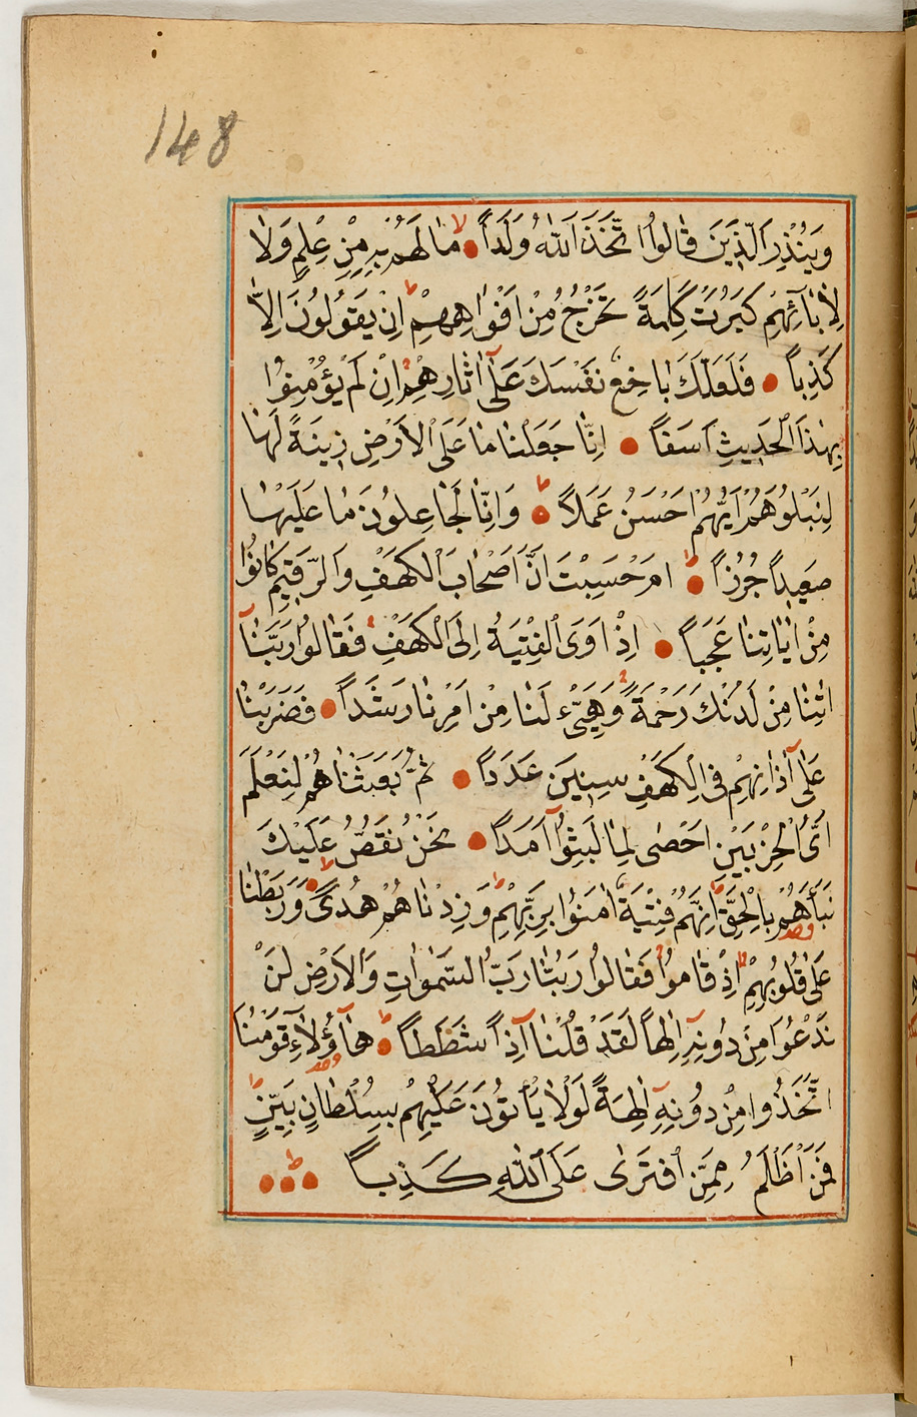 148
وَيُنْذِرَ الَّذِينَ قَالُوا اتَّخَذَ اللّٰهُ وَلَدًا مَا لَهُمْ بِهِ مِنْ عِلْمٍ وَلَا
لِاٰبَائِهِمْ كَبُرَتْ كَلِمَةً تَخْرُجُ مِنْ اَفْوَاهِهِمْ اِنْ يَقُولُونَ اِلَّا
كَذِبًا فَلَعَلَّكَ بَاخِعٌ نَفْسَكَ عَلٰٓى اٰثَارِهِمْ اِنْ لَمْ يُؤْمِنُوا
بِهٰذَا الْحَدِيثِ اَسَفًا اِنَّا جَعَلْنَا مَا عَلَى الْاَرْضِ زِينَةً لَهَا
لِنَبْلُوَهُمْ اَيُّهُمْ اَحْسَنُ عَمَلًا وَاِنَّا لَجَاعِلُونَ مَا عَلَيْهَا
صَعِيدًا جُرُزًا اَمْ حَسِبْتَ اَنَّ اَصْحَابَ الْكَهْفِ وَالرَّقِيمِ كَانُوا
مِنْ اٰيَاتِنَا عَجَبًا اِذْ اَوَى الْفِتْيَةُ اِلَى الْكَهْفِ فَقَالُوا رَبَّنَآ
اٰتِنَا مِنْ لَدُنْكَ رَحْمَةً وَهَيِّئْ لَنَا مِنْ اَمْرِنَا رَشَدًا فَضَرَبْنَا
عَلٰٓى اٰذَانِهِمْ فِي الْكَهْفِ سِنِينَ عَدَدًا ثُمَّ بَعَثْنَاهُمْ لِنَعْلَمَ
اَيُّ الْحِزْبَيْنِ اَحْصٰى لِمَا لَبِثُوٓا اَمَدًا نَحْنُ نَقُصُّ عَلَيْكَ
نَبَاَهُمْ بِالْحَقِّ اِنَّهُمْ فِتْيَةٌ اٰمَنُوا بِرَبِّهِمْ وَزِدْنَاهُمْ هُدًى وَرَبَطْنَا
عَلٰى قُلُوبِهِمْ اِذْ قَامُوا فَقَالُوا رَبُّنَا رَبُّ السَّمٰوَاتِ وَالْاَرْضِ لَنْ
نَدْعُوَا مِنْ دُونِهِٓ اِلٰهًا لَقَدْ قُلْنَآ اِذًا شَطَطًا هٰٓؤُلَآءِ قَوْمُنَا
اتَّخَذُوا مِنْ دُونِهِٓ اٰلِهَةً لَوْلَا يَأْتُونَ عَلَيْهِمْ بِسُلْطَانٍ بَيِّنٍ
فَمَنْ اَظْلَمُ مِمَّنِ افْتَرٰى عَلَى اللّٰهِ كَذِبًا